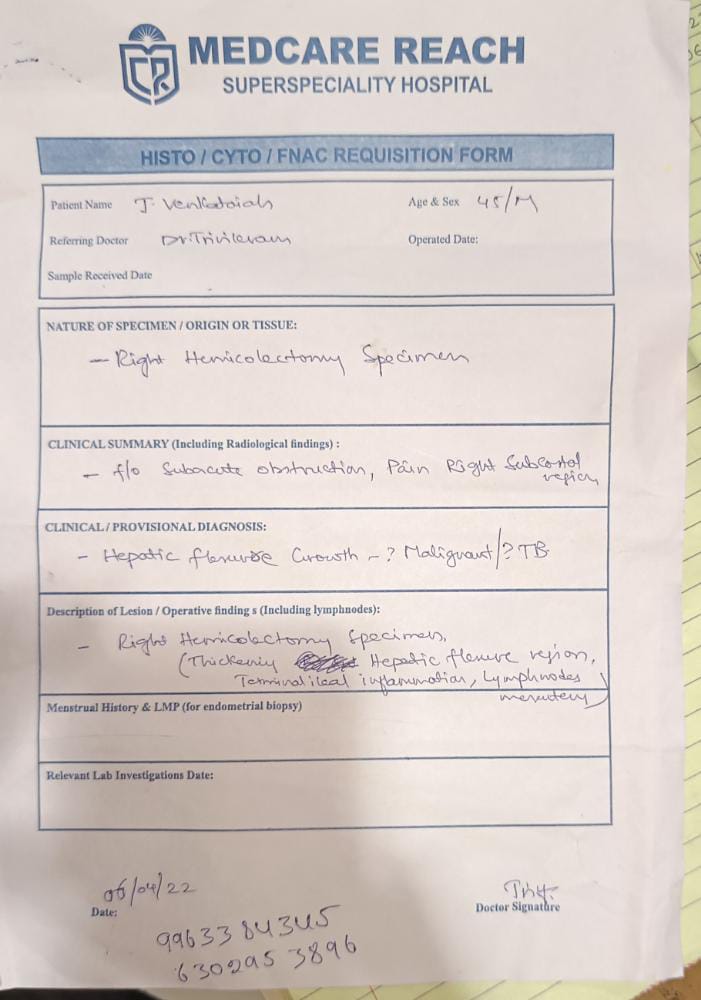 MEDCARE REACH
SUPERSPECIALITY HOSPITAL
HISTO / CYTO / FNAC REQUISITION FORM
Patient Name J. Venkataiah Age & Sex 45/M
Referring Doctor Dr. Trivikram Operated Date:
Sample Received Date
NATURE OF SPECIMEN / ORIGIN OR TISSUE:
- Right Hemicolectomy Specimen
CLINICAL SUMMARY (Including Radiological findings) :
- f/o Subacute obstruction, Pain Right Subcostal
region
CLINICAL / PROVISIONAL DIAGNOSIS:
- Hepatic flexure Growth - ? Malignant / ? TB
Description of Lesion / Operative finding s (Including lymphnodes):
- Right Hemicolectomy Specimen,
(Thickening Hepatic flexure region,
Terminal ileal inflammation, Lymphnodes
mesentery)
Menstrual History & LMP (for endometrial biopsy)
Relevant Lab Investigations Date:
06/04/22
Date: Doctor Signature
9963384345
6302953896